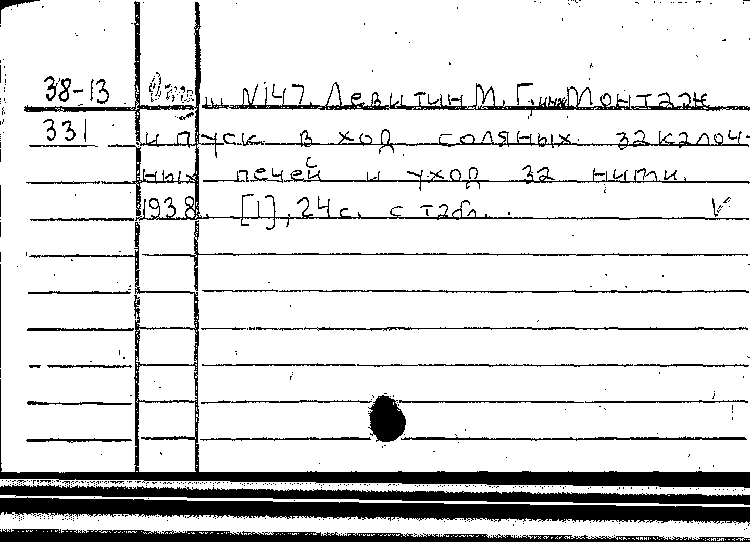 38-13 N147. Левитин М. Г. Монтаж
331 и пуск в ход соляных закалоч-
ных печей и уход за ними.
1938. [1], 24 с. с табл.